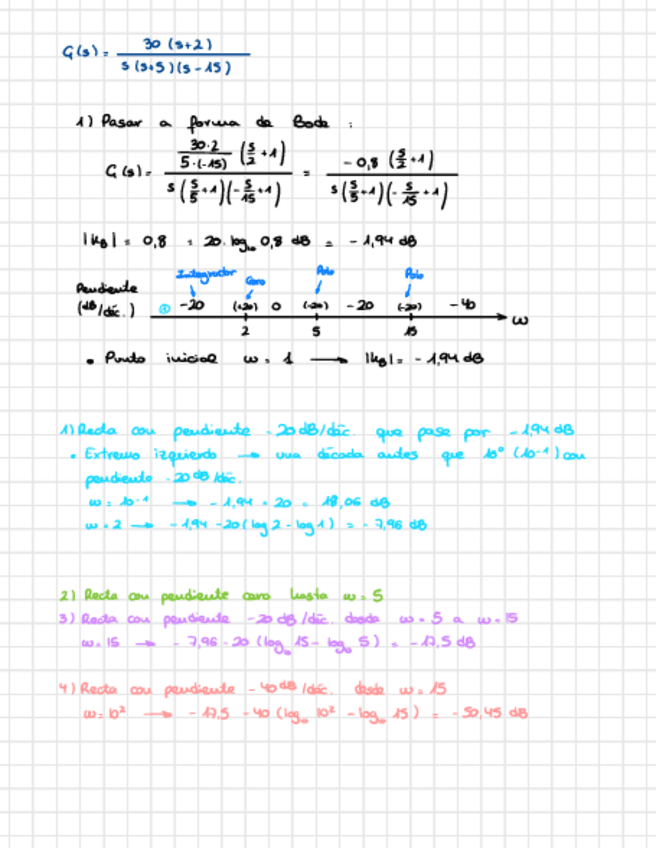 G(s) = 30 (s+2) / s (s+5)(s-15)
1) Pasar a forma de Bode :
G(s) = 30·2 / 5·(-15) (s/2 +1) / s (s/5 +1)(-s/15 +1) = -0,8 (s/2 +1) / s (s/5 +1)(-s/15 +1)
|k_B| = 0,8 = 20·log₁₀ 0,8 dB = -1,94 dB
Integrador Cero Polo Polo
Pendiente
(dB/déc.) ① -20 (+20) 0 (-20) -20 (-20) -40
2 5 15 ω
• Punto inicial ω = 1 → |k_B| = -1,94 dB
1) Recta con pendiente -20 dB/déc que pase por -1,94 dB
• Extremo izquierdo → una década antes que 10⁰ (10⁻¹) con
pendiente -20 dB/déc.
ω = 10⁻¹ → -1,94 + 20 = 18,06 dB
ω = 2 → -1,94 -20 (log 2 - log 1) = -7,96 dB
2) Recta con pendiente cero hasta ω = 5
3) Recta con pendiente -20 dB/déc. desde ω = 5 a ω = 15
ω = 15 → -7,96 - 20 (log₁₀ 15 - log₁₀ 5) = -17,5 dB
4) Recta con pendiente -40 dB/déc. desde ω = 15
ω = 10² → -17,5 -40 (log₁₀ 10² - log₁₀ 15) = -50,45 dB